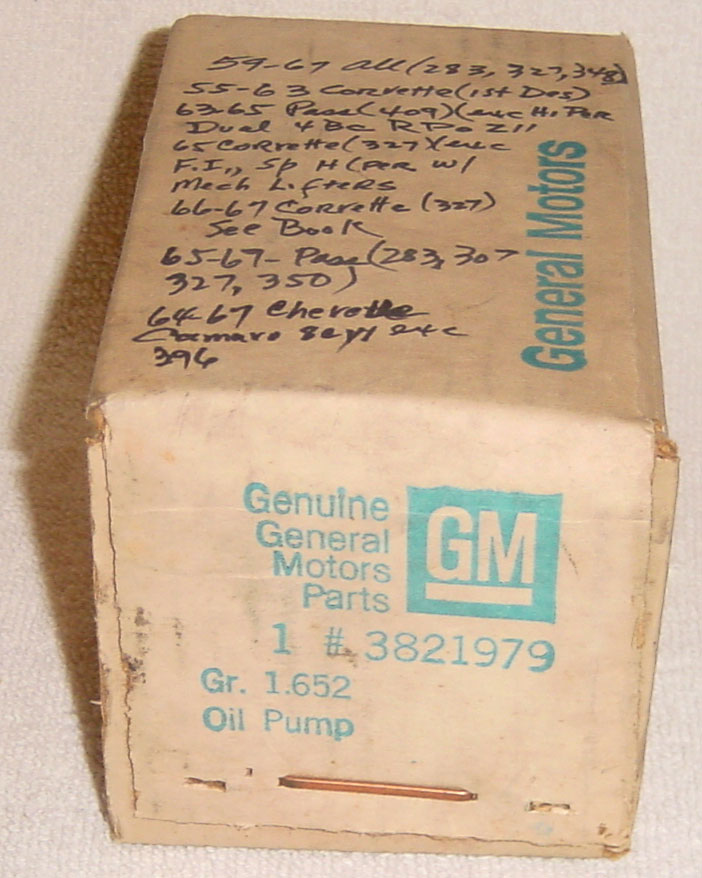 59-67 All (283, 327, 348)
55-63 Corvette (1st Des)
63-65 Pass (409) (exc Hi Per
Dual 4 BC RPO Z11
65 Corvette (327) (exc
F.I., Sp Hi Per w/
Mech Lifters
66-67 Corvette (327)
See Book
65-67- Pass (283, 307
327, 350)
64-67 Chevelle
Camaro 8cyl exc
396
General Motors
Genuine
General
Motors
Parts
GM
1 # 3821979
Gr. 1.652
Oil Pump